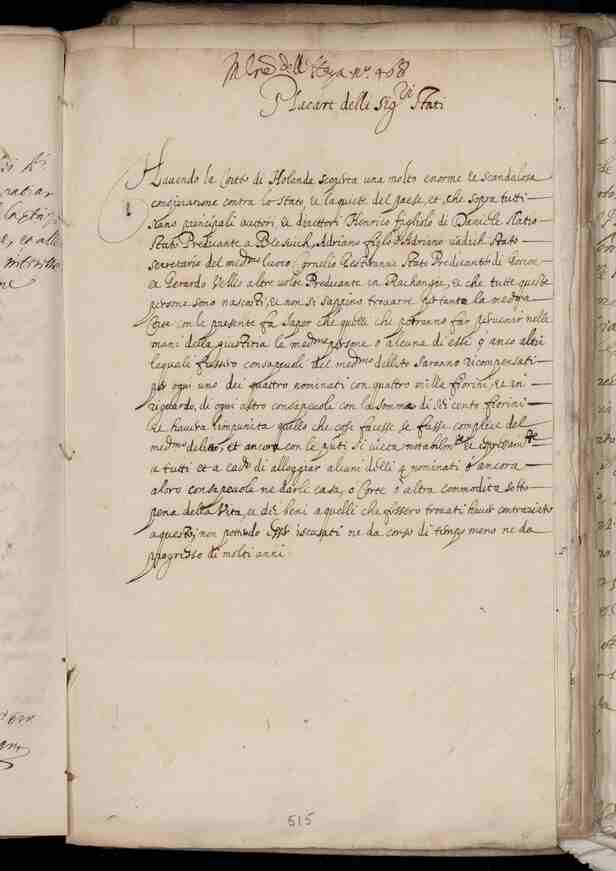 dell' Haya n.º 408
Placart delli Sig.ri Stati
Havendo la Corte di Holanda scoperta una molto enorme et scandalosa
congiuratione contra lo stato, et la quiete del paese, et che sopra tutti
siano principali autori et direttori Henrico figliolo di Daniele Slatio
stato Predicante a Bleswich, Adriano figlo d'Adriano vandich stato
secretario del med.mo luoco, Cornelio Gesteranus stato Predicante di
et Gerardo Vellio altre volte Predicante in et che tutte queste
persone sono nascosti, et non si sappino trovare, pertanto la medma
Corte con le presente fa saper che quelli che potranno far pervenir nelle
mani della giustitia le medme persone o alcuna di esse, o anco altri
liquali fussero consapevoli del med.mo delitto saranno ricompensati
per ogni uno dei quattro nominati con quattro milla fiorini, et in
riguardo di ogni altro consapevole con la somma di sei cento fiorini
et havera l'impunita quello che cose facesse se fusse complice del
med.mo delitto, et ancora con le pnti si vieta notabilm.te et espressam.te
a tutti et a cad.o di alloggiar alcuni delli 4 nominati o ancora
aloro consapevole ne darle casa, o Corte o altra commodita sotto
pena della Vita, et dei beni a quelli che fossero trovati haver contraviato
a questo, non potendo esser iscusati ne da corso di tempo meno ne da
progresso di molti anni.
515